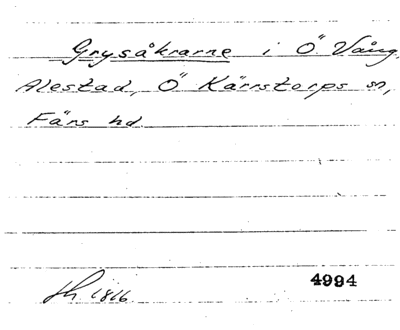 Grysåkrarne i Ö. Vång,
Alestad, Ö Kärrstorps sn,
Färs hd.
Sk 1816
4994